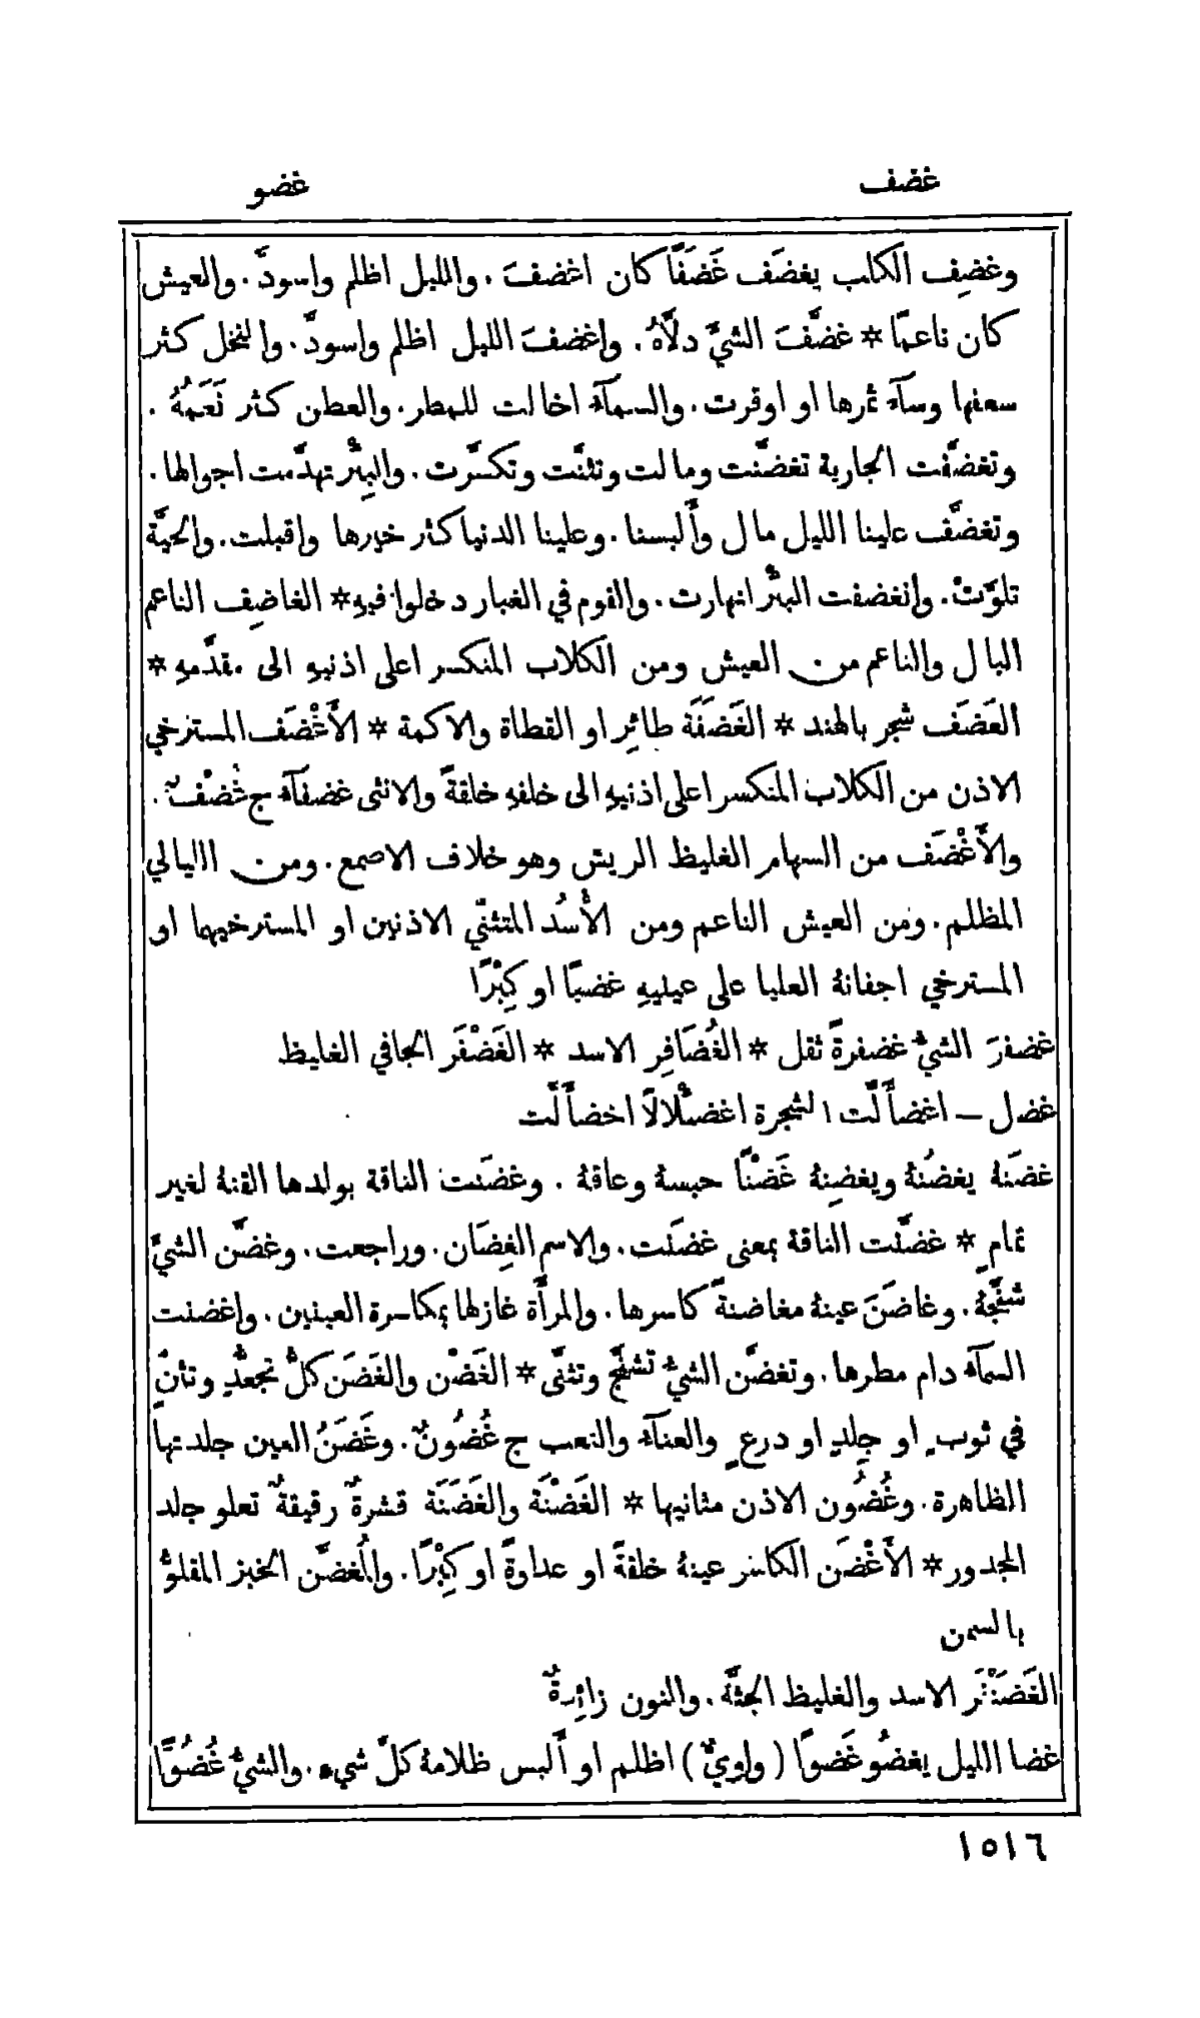 غضف
غضو
وغضِف الكلب يغضَف غَضَفًا كان اغضفَ. والليل اظلم واسودَّ. والعيش
كان ناعمًا * غضَّفَ الشيَّ دلَّاهُ. واغضفَ الليل اظلم واسودَّ. والنخل كثر
سعفها وسآء ثمرها او اوقرت. والسمآء اخالت للمطر. والعطن كثر نَعَمهُ.
وتغضَّفت الجارية تغضَّنت ومالت وتثنَّت وتكسَّرت. والبِئْر تهدَّمت اجوالها.
وتغضَّف علينا الليل مال وأَلبسنا. وعلينا الدنيا كثر خيرها واقبلت. والحيَّة
تلوَّتْ. وانغضفت البئْر انهارت. والقوم في الغبار دخلوا فيهِ * الغاضِف الناعم
البال والناعم من العيش ومن الكلاب المنكسر اعلى اذنيهِ الى مقدَّمهِ *
الغَضَف شجر بالهند * الغَضَفَة طائِر او القطاة والاكمة * الأَغْضَف المسترخي
الاذن من الكلاب المنكسر اعلى اذنيهِ الى خلفهِ خلقةً والانثى غضفآء ج غُضْفٌ.
والأَغْضَف من السهام الغليظ الريش وهو خلاف الاصمع. ومن الليالي
المظلم. ومن العيش الناعم ومن الأُسُد المتثنّي الاذنين او المسترخيهما او
المسترخي اجفانهُ العليا على عينيهِ غضبًا او كِبْرًا
غضفرَ الشيُّ غضفرةً ثقل * الغُضَافِر الاسد * الغَضْفَر الجافي الغليظ
غضل — اغضأَلَّت الشجرة اغضئْلالًا اخضأَلَّت
غضَنهُ يغضُنهُ ويغضِنهُ غَضْنًا حبسهُ وعاقهُ. وغضَنت الناقة بولدها القتهُ لغير
تمامٍ * غضَّنت الناقة بمعنى غضَنت. والاسم الغِضَان. وراجعت. وغضَّن الشيَّ
شنَّجهُ. وغاضَنَ عينهُ مغاضنةً كاسرها. والمرأَة غازلها بمكاسرة العينين. واغضنت
السمآء دام مطرها. وتغضَّن الشيُّ تشنَّج وتثنَّى * الغَضْن والغَضَن كلُّ تجعُّدٍ وتثنٍّ
في ثوبٍ او جِلدٍ او درعٍ والعنآء والتعب ج غُضُونٌ. وغَضَنُ العين جلدتها
الظاهرة. وغُضُون الاذن مثانيها * الغَضْنَة والغَضَنَة قشرةٌ رقيقةٌ تعلو جلد
المجدور * الأَغْضَن الكاسر عينهُ خلقةً او عداوةً او كِبْرًا. والمُغضَّن الخبز المفلوُّ
بالسمن
الغَضَنْفَر الاسد والغليظ الجثَّة. والنون زائِدةٌ
غضا الليل يغضُو غَضوًا (واويٌّ) اظلم او أَلبس ظلامهُ كلَّ شيءٍ. والشيُّ غُضُوًّا
١٥١٦